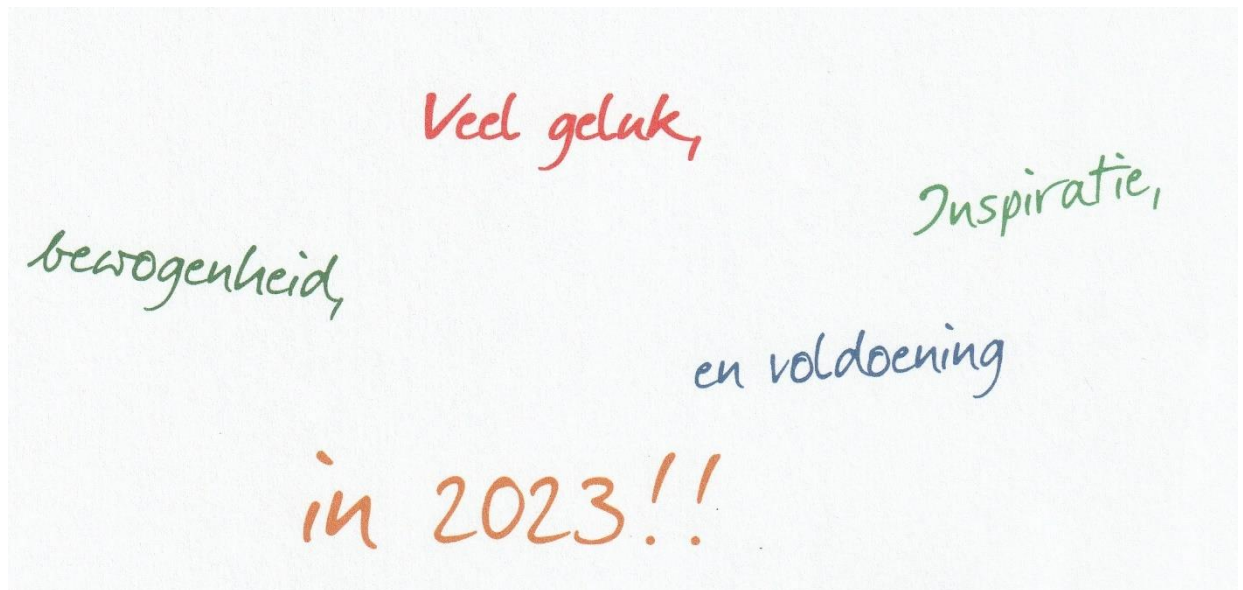 Veel geluk,
Inspiratie,
bewogenheid,
en voldoening
in 2023!!